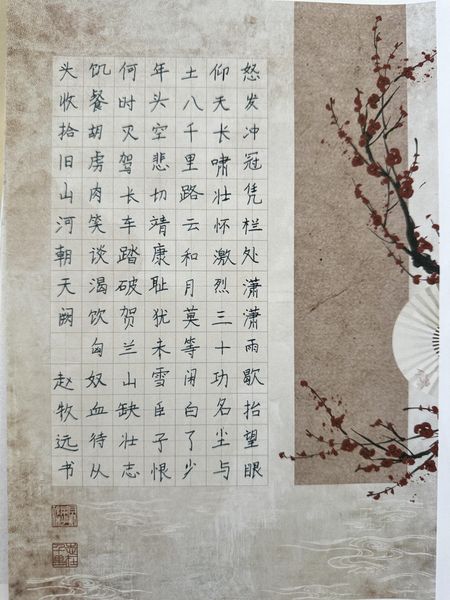 怒发冲冠凭栏处潇潇雨歇抬望眼
仰天长啸壮怀激烈三十功名尘与
土八千里路云和月莫等闲白了少
年头空悲切靖康耻犹未雪臣子恨
何时灭驾长车踏破贺兰山缺壮志
饥餐胡虏肉笑谈渴饮匈奴血待从
头收拾旧山河朝天阙 赵牧远书